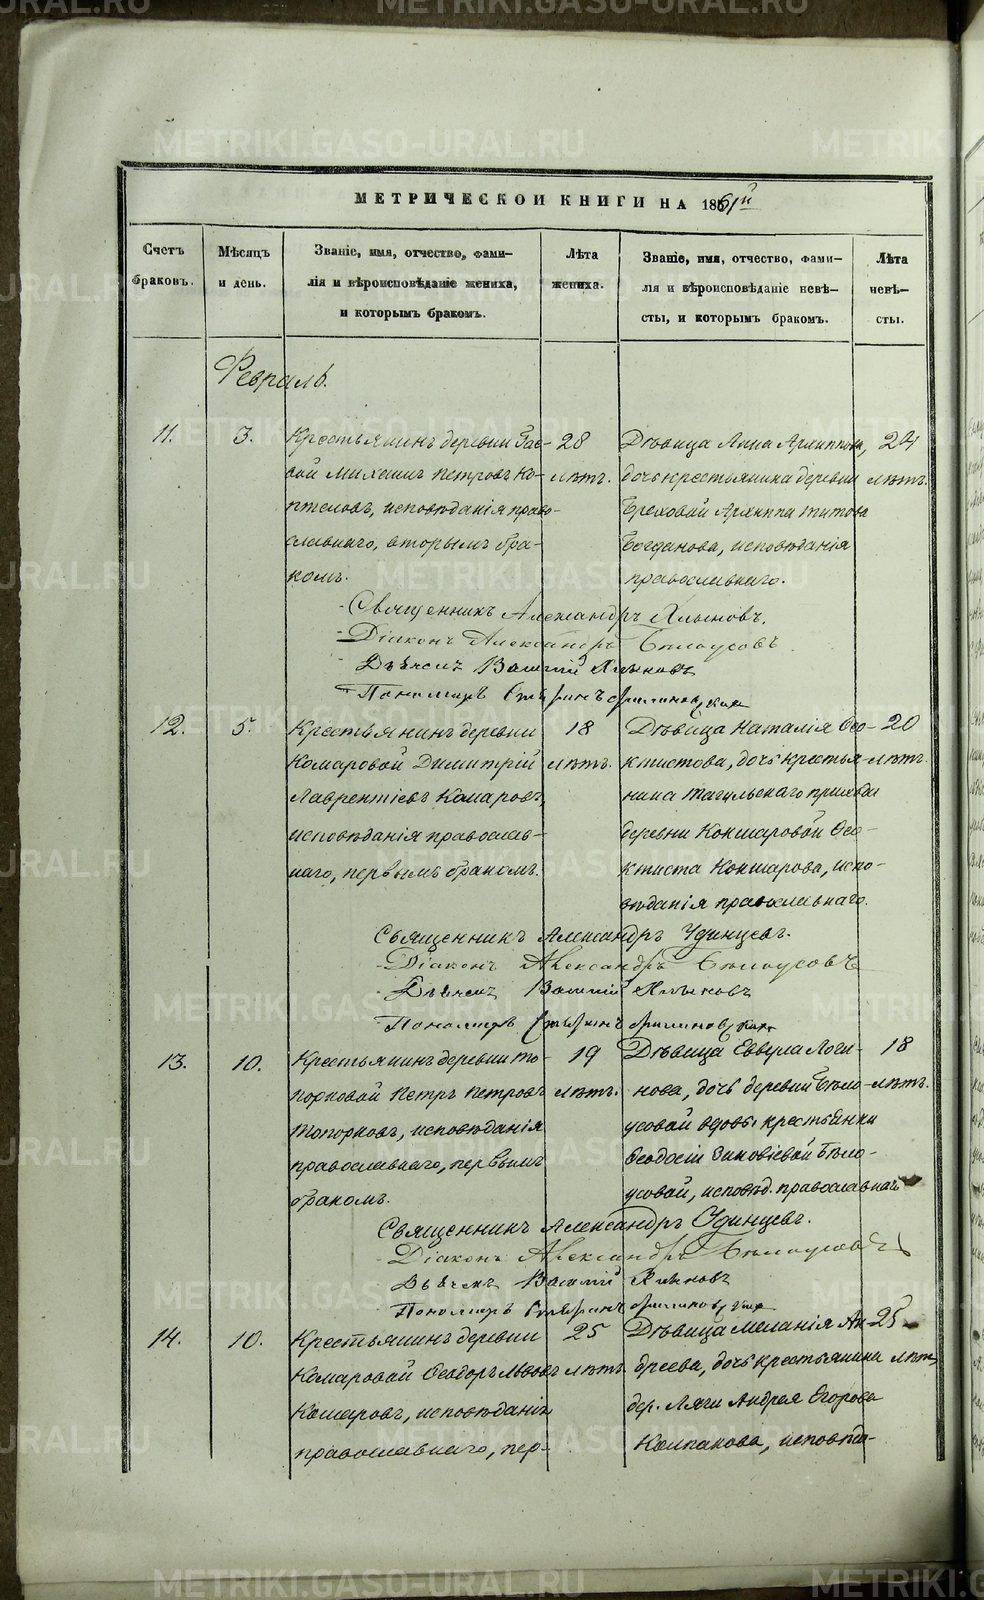 МЕТРИЧЕСКОЙ КНИГИ НА 1861й
Счетъ браковъ.
Мѣсяцъ и день.
Званіе, имя, отчество, фами-
лія и вѣроисповѣданіе жениха,
и которымъ бракомъ.
Лѣта жениха.
Званіе, имя, отчество, фами-
лія и вѣроисповѣданіе невѣ-
сты, и которымъ бракомъ.
Лѣта невѣ-
сты.
Февраль.
11. 3.
Крестьянинъ деревни
Михаилъ Петровъ Ко-
птеловъ, исповѣданія право-
славнаго, вторымъ бра-
комъ.
28
лѣтъ.
Дѣвица Анна Архиппова,
дочь крестьянина деревни
Архиппа Титова
Богданова, исповѣданія
православнаго.
24
лѣтъ.
Священникъ Александръ
Діаконъ Александръ Бѣлоусовъ
Дьячекъ Василій
Пономарь
12. 5.
Крестьянинъ деревни
Комаровой Димитрій
Лаврентіевъ Комаровъ,
исповѣданія православ-
наго, первымъ бракомъ.
18
лѣтъ.
Дѣвица Наталія Ѳео-
ктистова, дочь крестья-
нина Тагильскаго прихода
деревни Кокшаровой Ѳео-
ктиста Кокшарова, испо-
вѣданія православнаго.
20
лѣтъ.
Священникъ Александръ Удинцевъ.
Діаконъ Александръ Бѣлоусовъ
Дьячекъ Василій
Пономарь
13. 10.
Крестьянинъ деревни То-
порковой Петръ Петровъ
Топорковъ, исповѣданія
православнаго, первымъ
бракомъ.
19
лѣтъ.
Дѣвица Логи-
нова, дочь деревни Бѣло-
усовой вдовы крестьянки
Ѳеодосіи Зиновіевой Бѣло-
усовой, исповѣд. православнаго
18
лѣтъ.
Священникъ Александръ Удинцевъ.
Діаконъ Александръ Бѣлоусовъ
Дьячекъ Василій
Пономарь
14. 10.
Крестьянинъ деревни
Комаровой Ѳеодоръ Львовъ
Комаровъ, исповѣданія
православнаго, пер-
25
лѣтъ.
Дѣвица Меланія Ан-
дреева, дочь крестьянина
дер. Андрея Егорова
Колпакова, исповѣ-
25
лѣтъ
METRIKI.GASO-URAL.RU